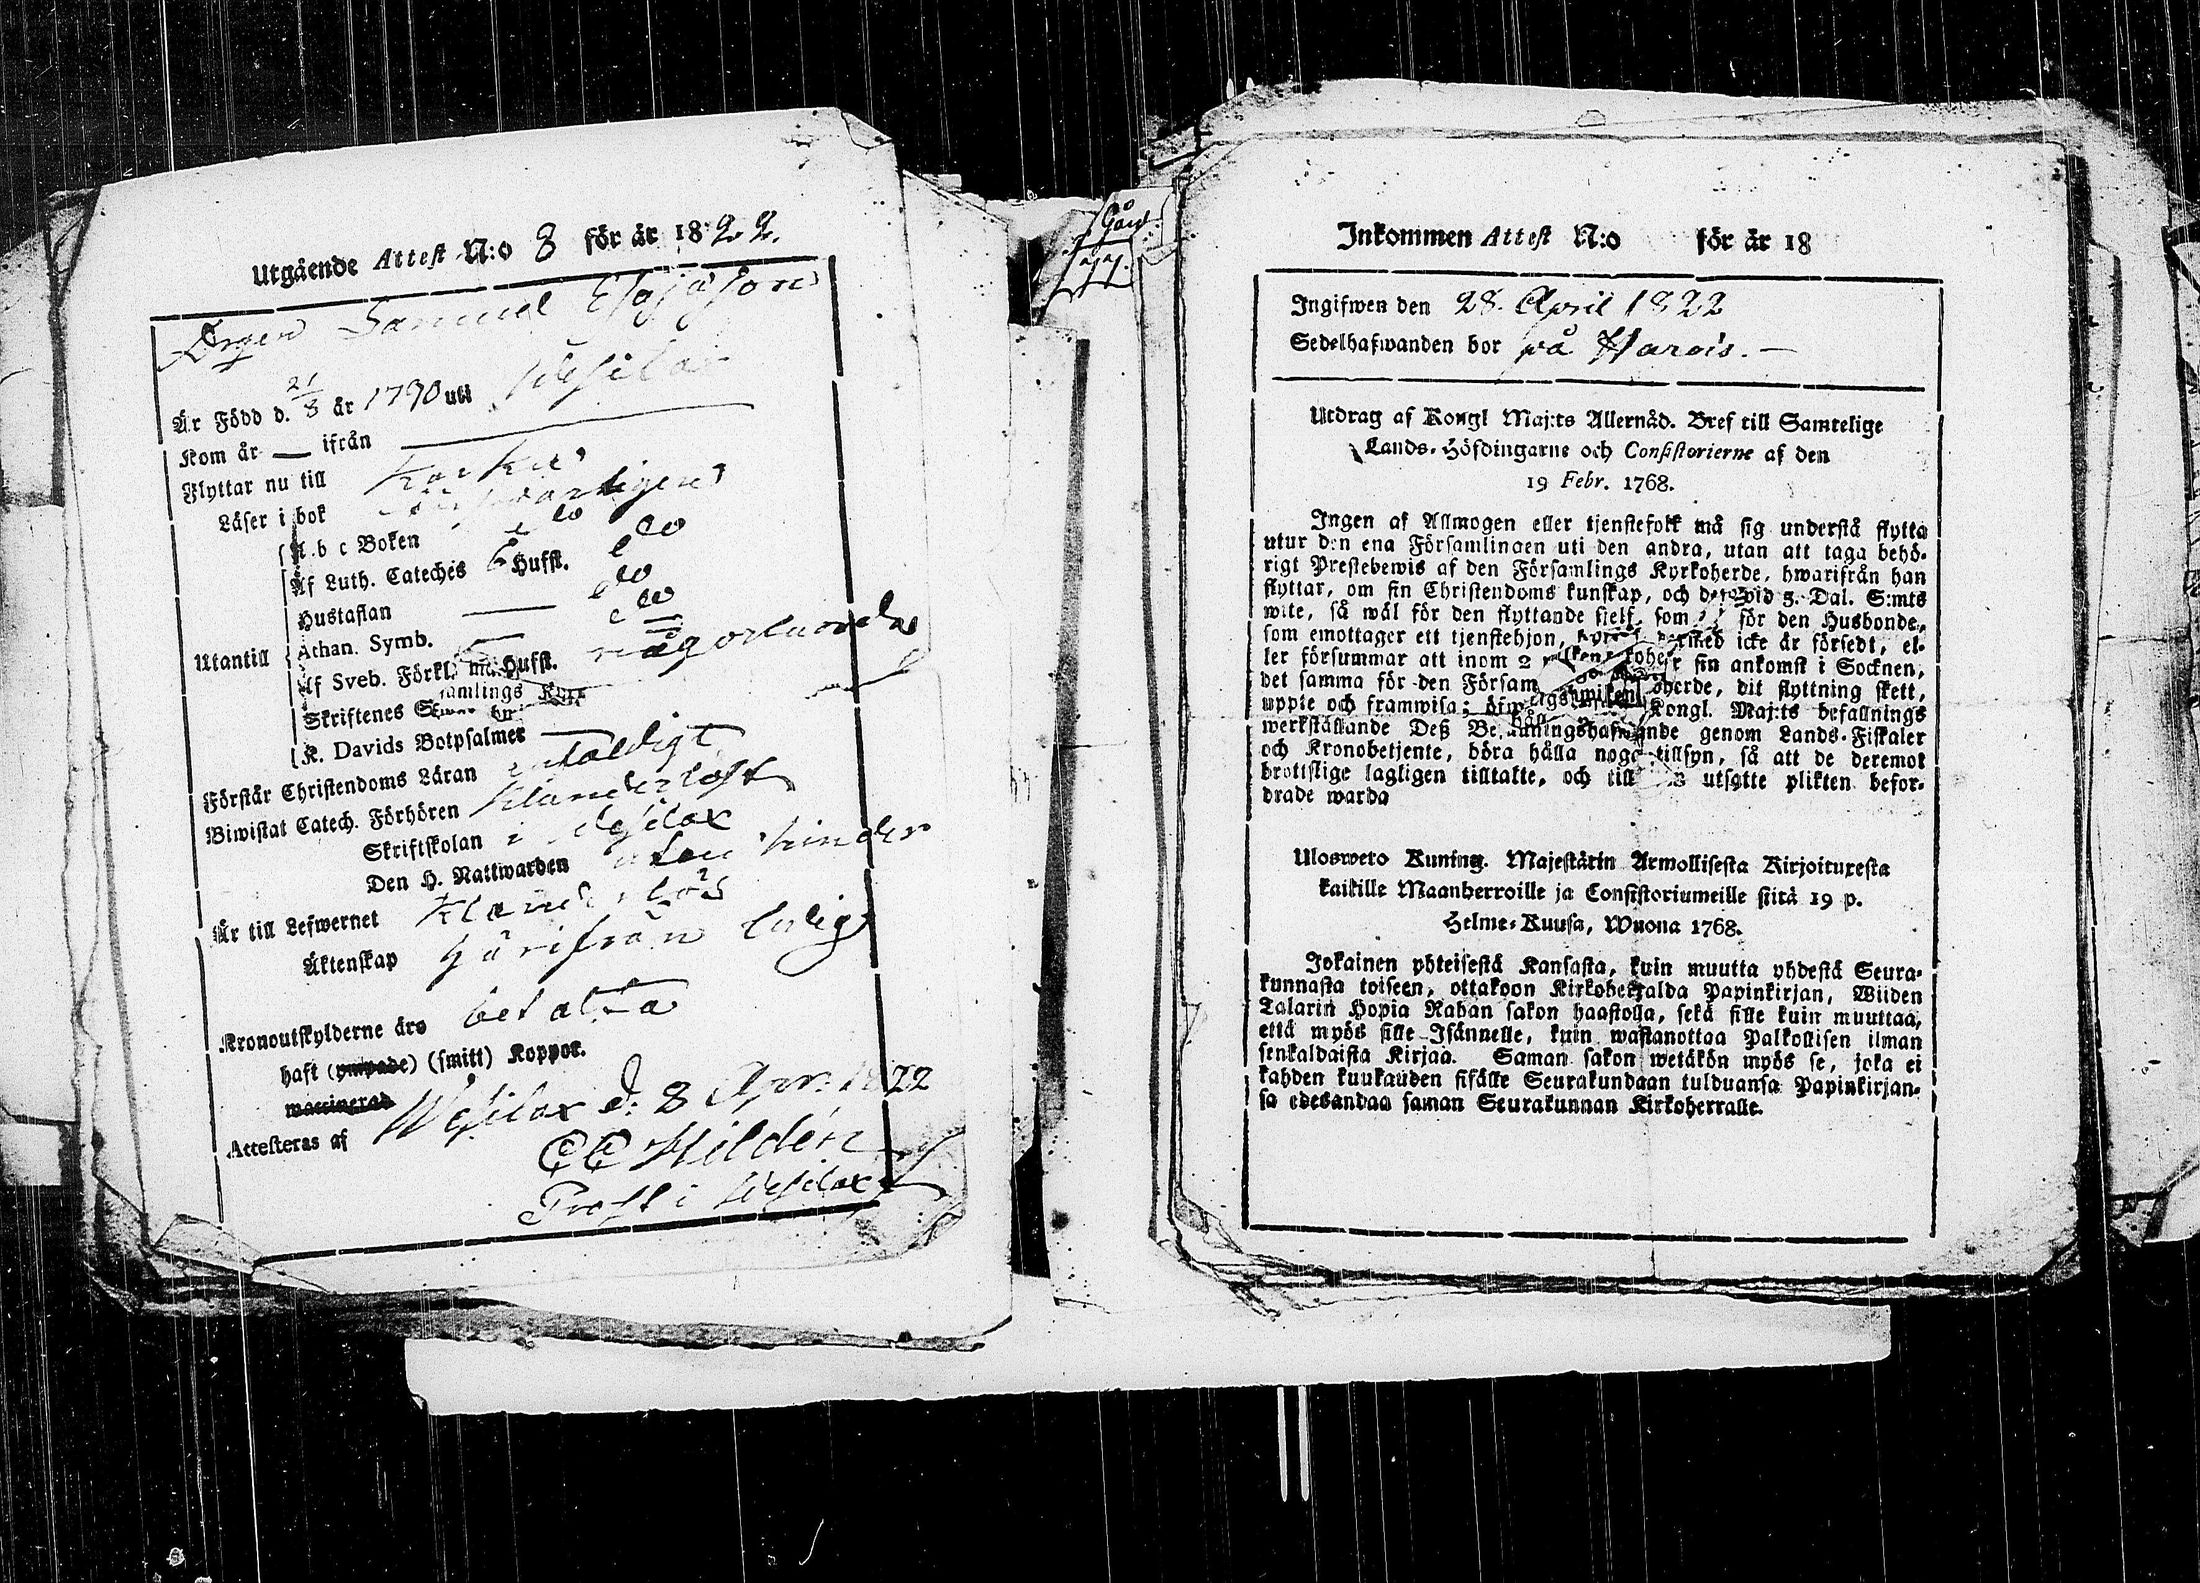 Utgående Attest N:o 8 för år 1822.
Drgen Samuel Esajason
Är Född d. 21/8 år 1790 uti Wesilax
Kom år — ifrån —
Flyttar nu till Karkku
Läser i bok försvarligen
A b c Boken do
Af Luth. Cateches 6 Hufst. do
Hustaflan do
Utantill Athan. Symb. — do
Af Sveb. Förkl. Hufst. någorlunda
Skriftenes
K. Davids Botpsalmer —
Förstår Christendoms Läran enfaldigt
Biwistat Catech. Förhören klanderlöst
Skriftskolan i Wesilax
Den H. Nattwarden utan hinder
Är till Lefwernet klanderlös
Äktenskap härifrån ledig
Kronoutskylderne äro betalta
haft (ympade) (smitt) Koppor.
waccinerad
Attesteras af Wesilax d: 8 Apr: 1822
CC Hildén
Prost i Wesilax
Inkommen Attest N:o för år 18
Ingifwen den 28. April 1822
Sedelhafwanden bor påHarois. —
Utdrag af Kongl Maj:ts Allernåd. Bref till Samtelige
Lands-Höfdingarne och Consistorierne af den
19 Febr. 1768.
Ingen af Allmogen eller tjenstefolk må sig understå flytta
utur den ena Församlingen uti den andra, utan att taga behö-
rigt Prestebewis af den Församlings Kyrkoherde, hwarifrån han
flyttar, om sin Christendoms kunskap, och det wid 5. Dal. S:mts
wite, så wäl för den flyttande sjelf, som för den Husbonde,
som emottager ett tjenstehjon, icke är försedt, el-
ler försummar att inom 2 efter sin ankomst i Socknen,
det samma för den Församlings Kyrkoherde, dit flyttning skett,
uppte och framwisa; Kongl. Maj:ts befallnings
werkställande Deß Befallningshafwande genom Lands-Fiskaler
och Kronobetjente, böra hålla noga tillsyn, så att de deremot
brottslige lagligen tilltalte, och till utsatte plikten befor-
drade warda
Ulosweto Kuning. Majestätin Armollisesta Kirjoituxesta
kaikille Maanherroille ja Consistoriumeille siitä 19 p.
Helme-Kuusa, Wuona 1768.
Jokainen yhteisestä Kansasta, kuin muutta yhdestä Seura-
kunnasta toiseen, ottakoon Kirkoherralda Papinkirjan, Wiiden
Talarin Hopia Rahan sakon haastolla, sekä sille kuin muuttaa,
että myös sille Isännelle, kuin wastanottaa Palkollisen ilman
senkaldaista Kirjaa. Saman sakon wetäkön myös se, joka ei
kahden kuukauden sisälle Seurakundaan tulduansa Papinkirjan-
sa edesandaa saman Seurakunnan Kirkoherralle.